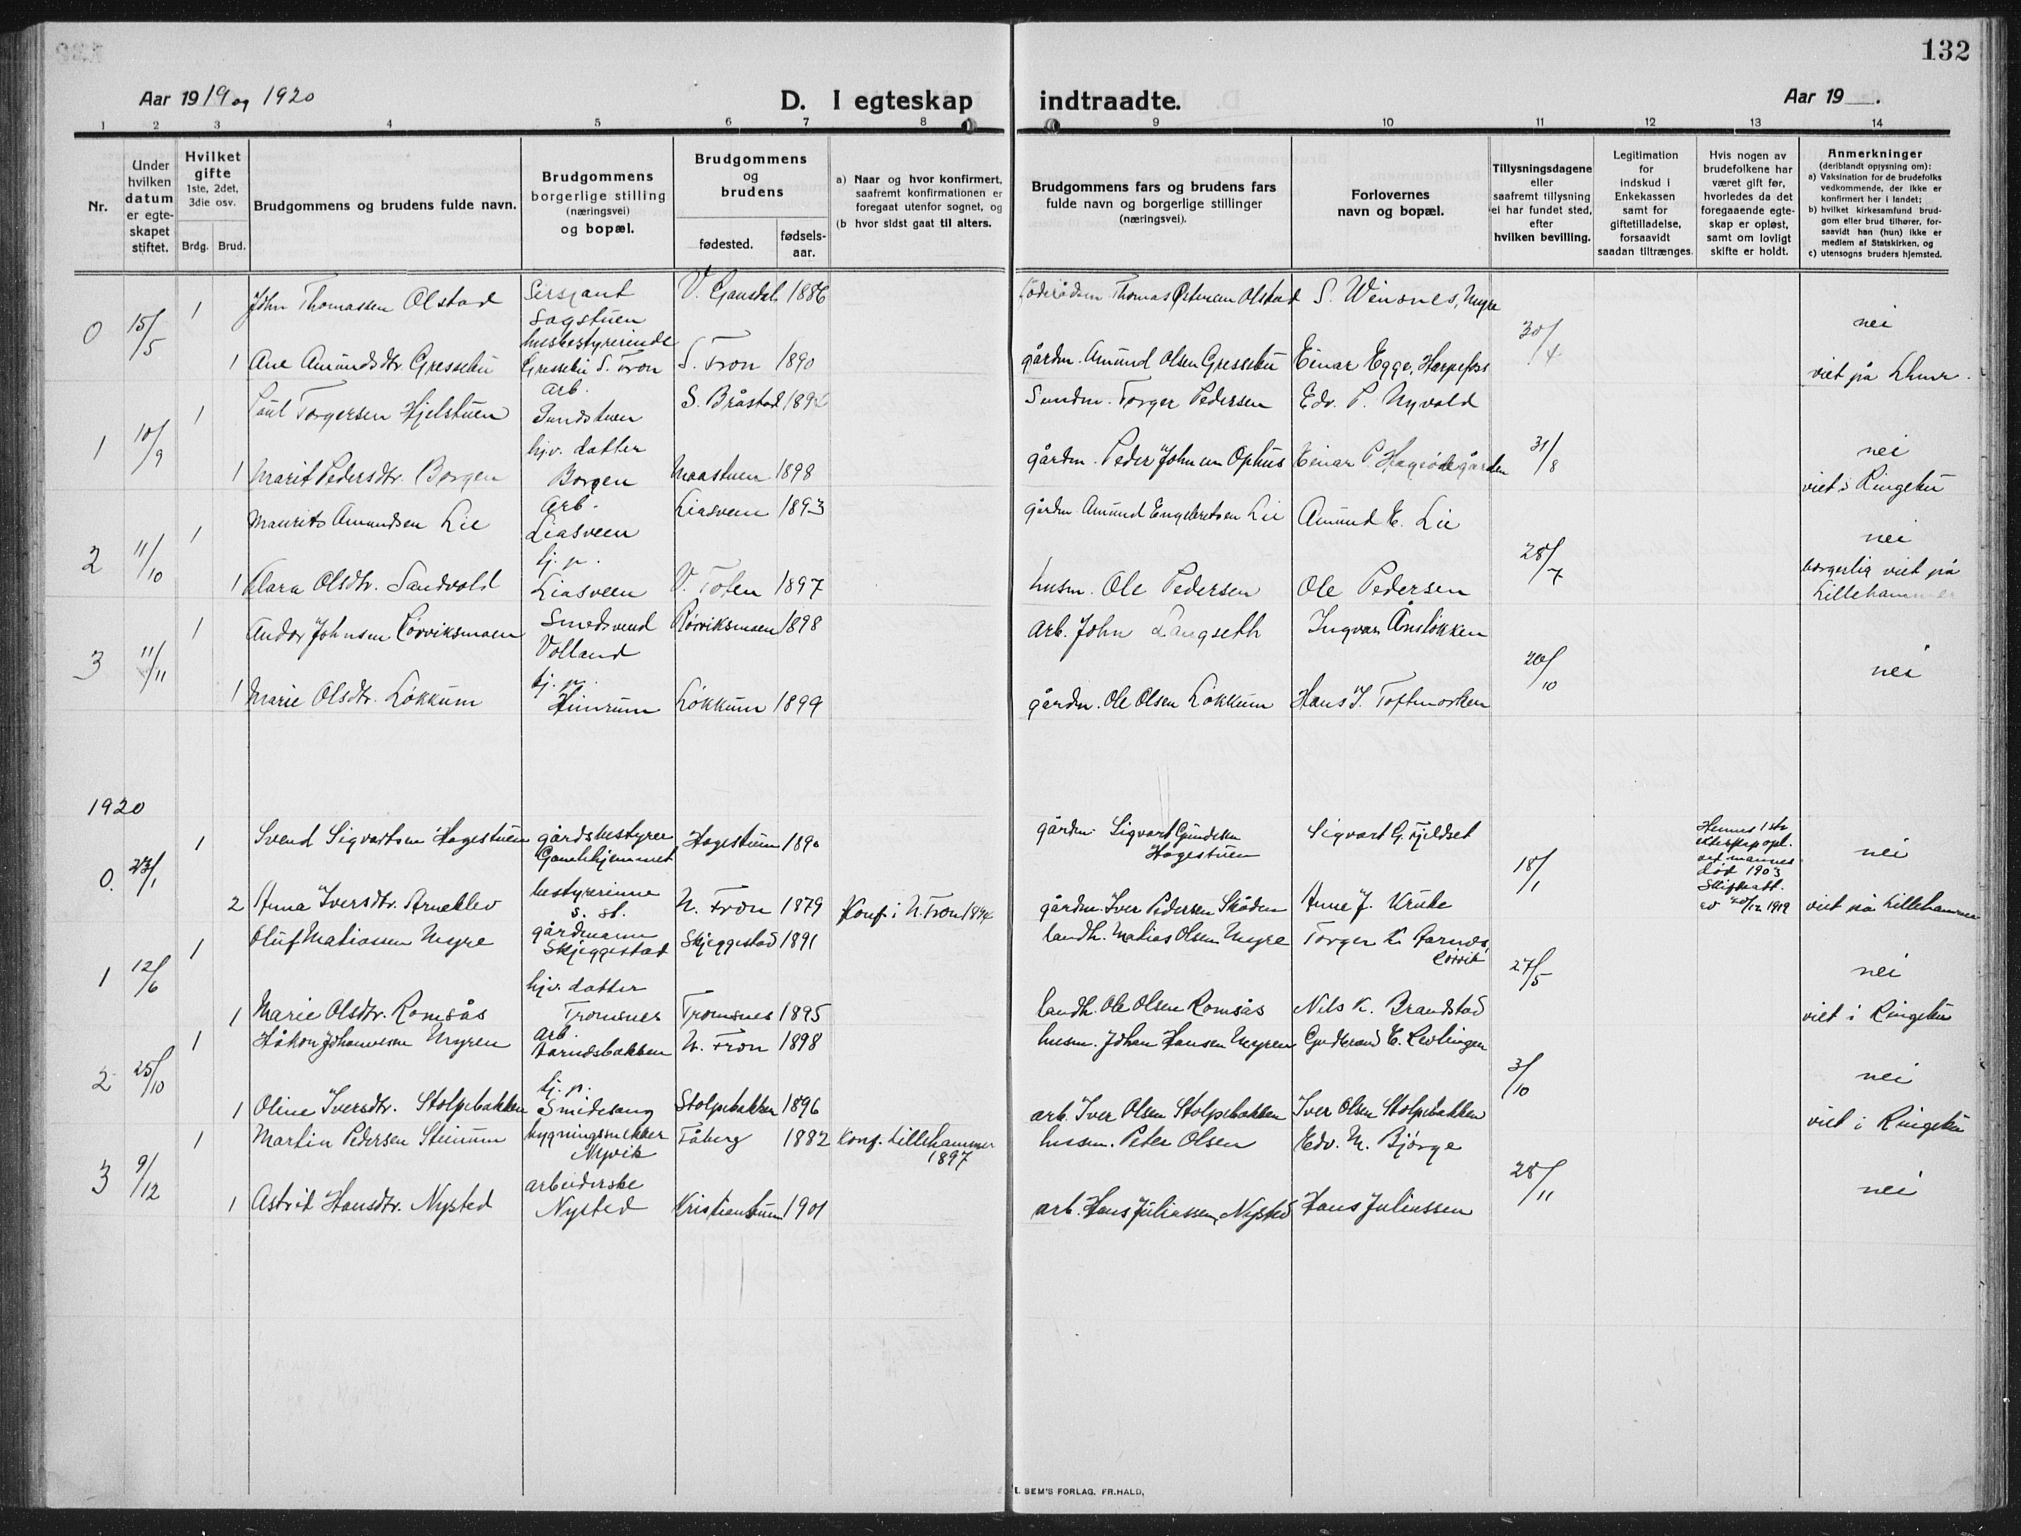 132
Aar 1919 og 1920
D. I egteskap indtraadte.
Aar 19 .
1 2 3 4 5 6 7 8 9 10 11 12 13 14
Nr.
Under hvilken datum er egteskapet stiftet.
Hvilket gifte
1ste, 2det, 3die osv.
Brdg. Brud.
Brudgommens og brudens fulde navn.
Brudgommens borgerlige stilling
(næringsvei)
og bopæl.
Brudgommens og brudens
fødested.
fødselsaar.
a) Naar og hvor konfirmert, saafremt konfirmationen er foregaat utenfor sognet, og
(b hvor sidst gaat til alters.
Brudgommens fars og brudens fars
fulde navn og borgerlige stillinger
(næringsvei).
Forlovernes
navn og bopæl.
Tillysningsdagene
eller
saafremt tillysning
ei har fundet sted,
efter
hvilken bevilling.
Legitimation
for
indskud i
Enkekassen
samt for
giftetilladelse,
forsaavidt
saadan tiltrænges.
Hvis nogen av
brudefolkene har
været gift før,
hvorledes da det
foregaaende egte-
skap er opløst,
samt om lovligt
skifte er holdt.
Anmerkninger
(deriblandt opysning om):
a) Vaksination for de brudefolks
vedkommende, der ikke er
konfirmert her i landet;
b) hvilket kirkesamfund brud-
gom eller brud tilhører, for-
saavidt han (hun) ikke er
medlem af Statskirken, og
c) utensogns bruders hjemsted.
0 15/5 1 John Thomassen Olstad Sersjant Sagstuen V. Gausdal 1886 Thomas Olstad S. Winsnes, Myre 30/4 nei
1 Ane Amundsdtr. Gressebu husbestyrerinde Gressebu S. Fron S. Fron 1890 gårdm. Amund Olsen Gressebu Einar Egge, Harpefoss viet på Lhmr.
1 10/9 1 Paul Torgersen Hjelstuen arb. Sundstuen S. Bråstad Sundm. Torger Pedersen Edv. P. Nyvold 31/8 nei
1 Marit Pedersdtr. Borgen hjv. datter Borgen Maastuen 1898 gårdm. Peder Johnsen Ophus Einar P. viet i Ringebu
2 11/10 1 Maurits Amundsen Lie arb. Liasveen Liasveen 1893 gårdm. Amund Engebretsen Lie Amund E. Lie 28/7 nei
1 Klara Olsdtr. Sandvold tj. p. Liasveen V. Toten 1897 husm. Ole Pedersen Ole Pedersen borgerlig viet på Lillehammer
3 11/11 1 Andor Johnsen Rørviksmoen Smedsvend Volland Rørviksmoen 1898 arb. John Langseth Ingvar Ånsløkken 20/10 nei
1 Marie Olsdtr. Løkkum tj. p. Himrum Løkkum 1899 gårdm. Ole Olsen Løkkum Hans J. Toftmorken
1920
0. 23/1 1 Svend Sigvartsen Hagestuen gårdsbestyrer Gamlehjemmet Hagestuen 1890 gårdm. Sigvart Gundersen Hagestuen Sigvart G. Fjeldset 18/1 Hennes 1ste ekteskap opl. ved mannes død 1903 Skifteatt. av 20/12 1919 nei
2 Anna Iversdtr. Arneklev bestyrerinne s. st. N. Fron 1879 Konf. i N. Fron gårdm. Iver Pedersen Anne J. Kruke viet på Lillehammer
1 12/6 1 Oluf Matiassen Myre gårdmann Skjeggestad Skjeggestad 1891 landh. Matias Olsen Myre Torger K. Aarnes, Rørvik 27/5 nei
1 Marie Olsdtr. Romsås hjv. datter Tromsnes Tromsnes 1895 landh. Ole Olsen Romsås Nils K. Brandstad viet i Ringebu
2 25/10 1 Håkon Johannesen Myren arb. Aarnesbakken N. Fron 1898 husm. Johan Hansen Myren Gudbrand E. Kvolingen 3/10 nei
1 Oline Iversdtr. Stolpebakken tj. p. Smidesang Stolpebakken 1896 arb. Iver Olsen Stolpebakken Iver Olsen Stolpebakken viet i Ringebu
3 9/12 1 Martin Pedersen Steinum bygningssnekker Myvik Fåberg 1882 Konf. Lillehammer 1897 husm. Peter Olsen Edv. M. Bjørge 28/11 nei
1 Astrid Hansdtr. Nysted arbeiderske Nysted Kristiansund 1901 arb. Hans Juliussen, Nysted Hans Juliussen
SEM'S FORLAG. FR.HALD.